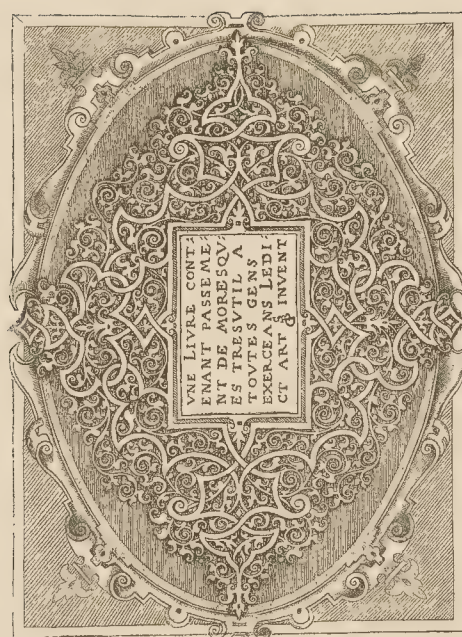 VNE LIVRE CONT:
ENANT PASSEME:
NT DE MORESQV:
ES TRESVTIL A
TOVTES GENS
EXERCEANS LEDI
CT ART S & INVENT